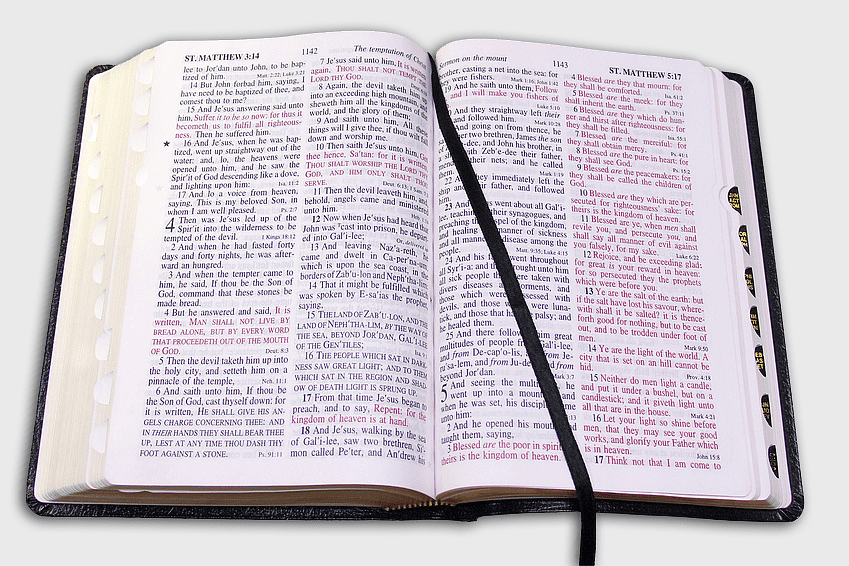 ST. MATTHEW 3:14
1142
The temptation of
lee to Jor'dan unto John, to be bap-
tized of him. Matt. 2:22; Luke 3:21
14 But John forbad him, saying, I
have need to be baptized of thee, and
comest thou to me?
15 And Je'sus answering said unto
him, Suffer it to be so now: for thus it
becometh us to fulfil all righteous-
ness. Then he suffered him.
★ 16 And Je'sus, when he was bap-
tized, went up straightway out of the
water: and, lo, the heavens were
opened unto him, and he saw the
Spir'it of God descending like a dove,
and lighting upon him: Isa. 11:2
17 And lo a voice from heaven,
saying, This is my beloved Son, in
whom I am well pleased. Ps. 2:7
4 Then was Je'sus led up of the
Spir'it into the wilderness to be
tempted of the devil. 1 Kings 18:12
2 And when he had fasted forty
days and forty nights, he was after-
ward an hungred.
3 And when the tempter came to
him, he said, If thou be the Son of
God, command that these stones be
made bread.
4 But he answered and said, It is
written, MAN SHALL NOT LIVE BY
BREAD ALONE, BUT BY EVERY WORD
THAT PROCEEDETH OUT OF THE MOUTH
OF GOD. Deut. 8:3
5 Then the devil taketh him up into
the holy city, and setteth him on a
pinnacle of the temple, Neh. 11:1
6 And saith unto him, If thou be
the Son of God, cast thyself down: for
it is written, HE SHALL GIVE HIS AN-
GELS CHARGE CONCERNING THEE: AND
IN THEIR HANDS THEY SHALL BEAR THEE
UP, LEST AT ANY TIME THOU DASH THY
FOOT AGAINST A STONE. Ps. 91:11
7 Je'sus said unto him, It is
again, THOU SHALT NOT TEMPT
LORD THY GOD.
8 Again, the devil taketh him up
into an exceeding high mountain, and
sheweth him all the kingdoms of the
world, and the glory of them;
9 And saith unto him, All these
things will I give thee, if thou wilt fall
down and worship me.
10 Then saith Je'sus unto him, Get
thee hence, Sa'tan: for it is written,
THOU SHALT WORSHIP THE LORD THY
GOD, AND HIM ONLY SHALT THOU
SERVE. Deut. 6:13;
11 Then the devil leaveth him, and,
behold, angels came and ministered
unto him.
12 Now when Je'sus had heard that
John was cast into prison, he depart-
ed into Gal'i-lee;
13 And leaving Naz'a-reth, he
came and dwelt in Ca-per'na-um,
which is upon the sea coast, in the
borders of Zab'u-lon and Neph'tha-lim:
14 That it might be fulfilled which
was spoken by E-sa'ias the prophet,
saying,
15 THE LAND OF ZAB'U-LON, AND THE
LAND OF NEPH'THA-LIM, BY THE WAY OF
THE SEA, BEYOND JOR'DAN, GAL'I-LEE
OF THE GEN'TILES;
16 THE PEOPLE WHICH SAT IN DARK-
NESS SAW GREAT LIGHT; AND TO THEM
WHICH SAT IN THE REGION AND SHAD-
OW OF DEATH LIGHT IS SPRUNG UP.
17 From that time Je'sus began to
preach, and to say, Repent: for the
kingdom of heaven is at hand.
18 And Je'sus, walking by the sea
of Gal'i-lee, saw two brethren, Si'-
mon called Pe'ter, and An'drew his
Sermon on the mount
1143
ST. MATTHEW 5:17
brother, casting a net into the sea: for
they were fishers. Mark 1:16; John 1:42
19 And he saith unto them, Follow
and I will make you fishers of
Luke 5:10
And they straightway left their
and followed him. Mark 10:28
And going on from thence, he
other two brethren, James the son
and John his brother, in
with Zeb'e-dee their father,
their nets; and he called
them. Mark 1:19
22 And they immediately left the
ship and their father, and followed
him.
23 And went about all Gal'i-
lee, teaching their synagogues, and
preaching the gospel of the kingdom,
and healing manner of sickness
and all manner disease among the
people. Matt. 9:35; Luke 4:15
24 And his went throughout
all Syr'i-a: and they brought unto him
all sick people that were taken with
divers diseases torments, and
those which were possessed with
devils, and those were luna-
tick, and those that palsy; and
he healed them.
25 And there followed him great
multitudes of people from Gal'i-lee,
and from De-cap'o-lis, and from Je-
ru'sa-lem, and from Ju-de'a, from
beyond Jor'dan.
5 And seeing the multitudes, he
went up into a mountain: and
when he was set, his disciples came
unto him:
2 And he opened his mouth, and
taught them, saying,
3 Blessed are the poor in spirit:
theirs is the kingdom of heaven.
4 Blessed are they that mourn: for
they shall be comforted. Isa. 61:2
5 Blessed are the meek: for they
shall inherit the earth. Ps. 37:11
6 Blessed are they which do hun-
ger and thirst after righteousness: for
they shall be filled. Isa. 55:1
7 Blessed are the merciful: for
they shall obtain mercy. Ps. 41:1
8 Blessed are the pure in heart: for
they shall see God. Ps. 15:2
9 Blessed are the peacemakers: for
they shall be called the children of
God.
10 Blessed are they which are per-
secuted for righteousness' sake: for
theirs is the kingdom of heaven.
11 Blessed are ye, when men shall
revile you, and persecute you, and
shall say all manner of evil against
you falsely, for my sake. Luke 6:22
12 Rejoice, and be exceeding glad:
for great is your reward in heaven:
for so persecuted they the prophets
which were before you.
13 Ye are the salt of the earth: but
if the salt have lost his savour, where-
with shall it be salted? it is thence-
forth good for nothing, but to be cast
out, and to be trodden under foot of
men. Mark 9:50
14 Ye are the light of the world. A
city that is set on an hill cannot be
hid. Prov. 4:18
15 Neither do men light a candle,
and put it under a bushel, but on a
candlestick; and it giveth light unto
all that are in the house. Mark 4:21
16 Let your light so shine before
men, that they may see your good
works, and glorify your Father which
is in heaven. John 15:8
17 Think not that I am come to